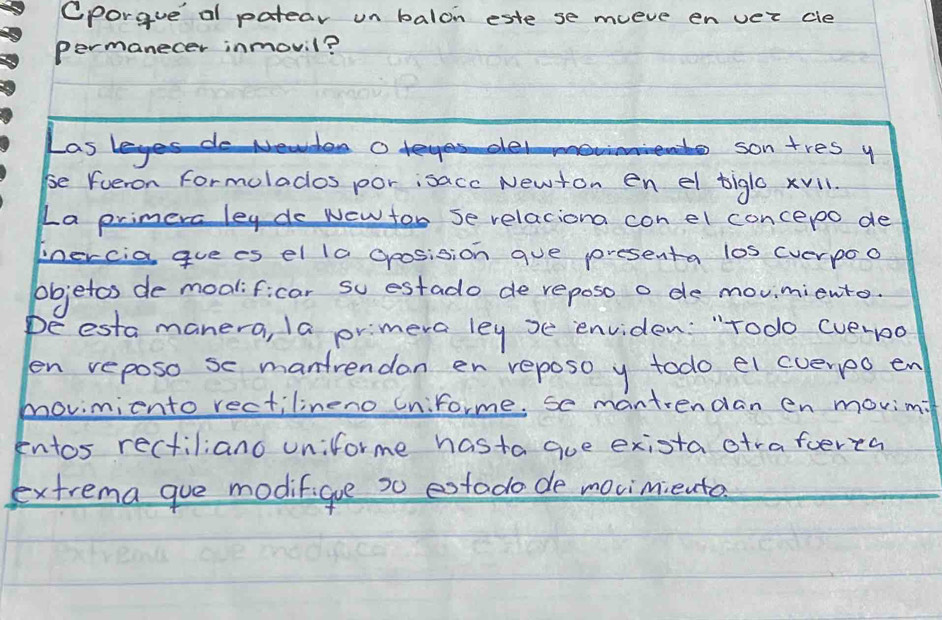 Cporqué al patear un balón este se mueve en vez de
permanecer inmovil?
Las leyes de Newton o leyes del movimiento son tres y
se fueron formulados por isacc Newton en el siglo XVII.
La primera ley de Newton se relaciona con el concepo de
inercia que es el la oposisión que presenta los cuerpo o
objetos de modificar su estado de reposo o de movimiento.
De esta manera, la primera ley se enviden: "Todo cuerpo
en reposo se mantrendan en reposo y todo el cuerpo en
movimiento rectilineno uniforme. se mantrendan en movimi
entos rectiliano uniforme hasta que exista otra fuerza
extrema que modifique su estado de movimiento.